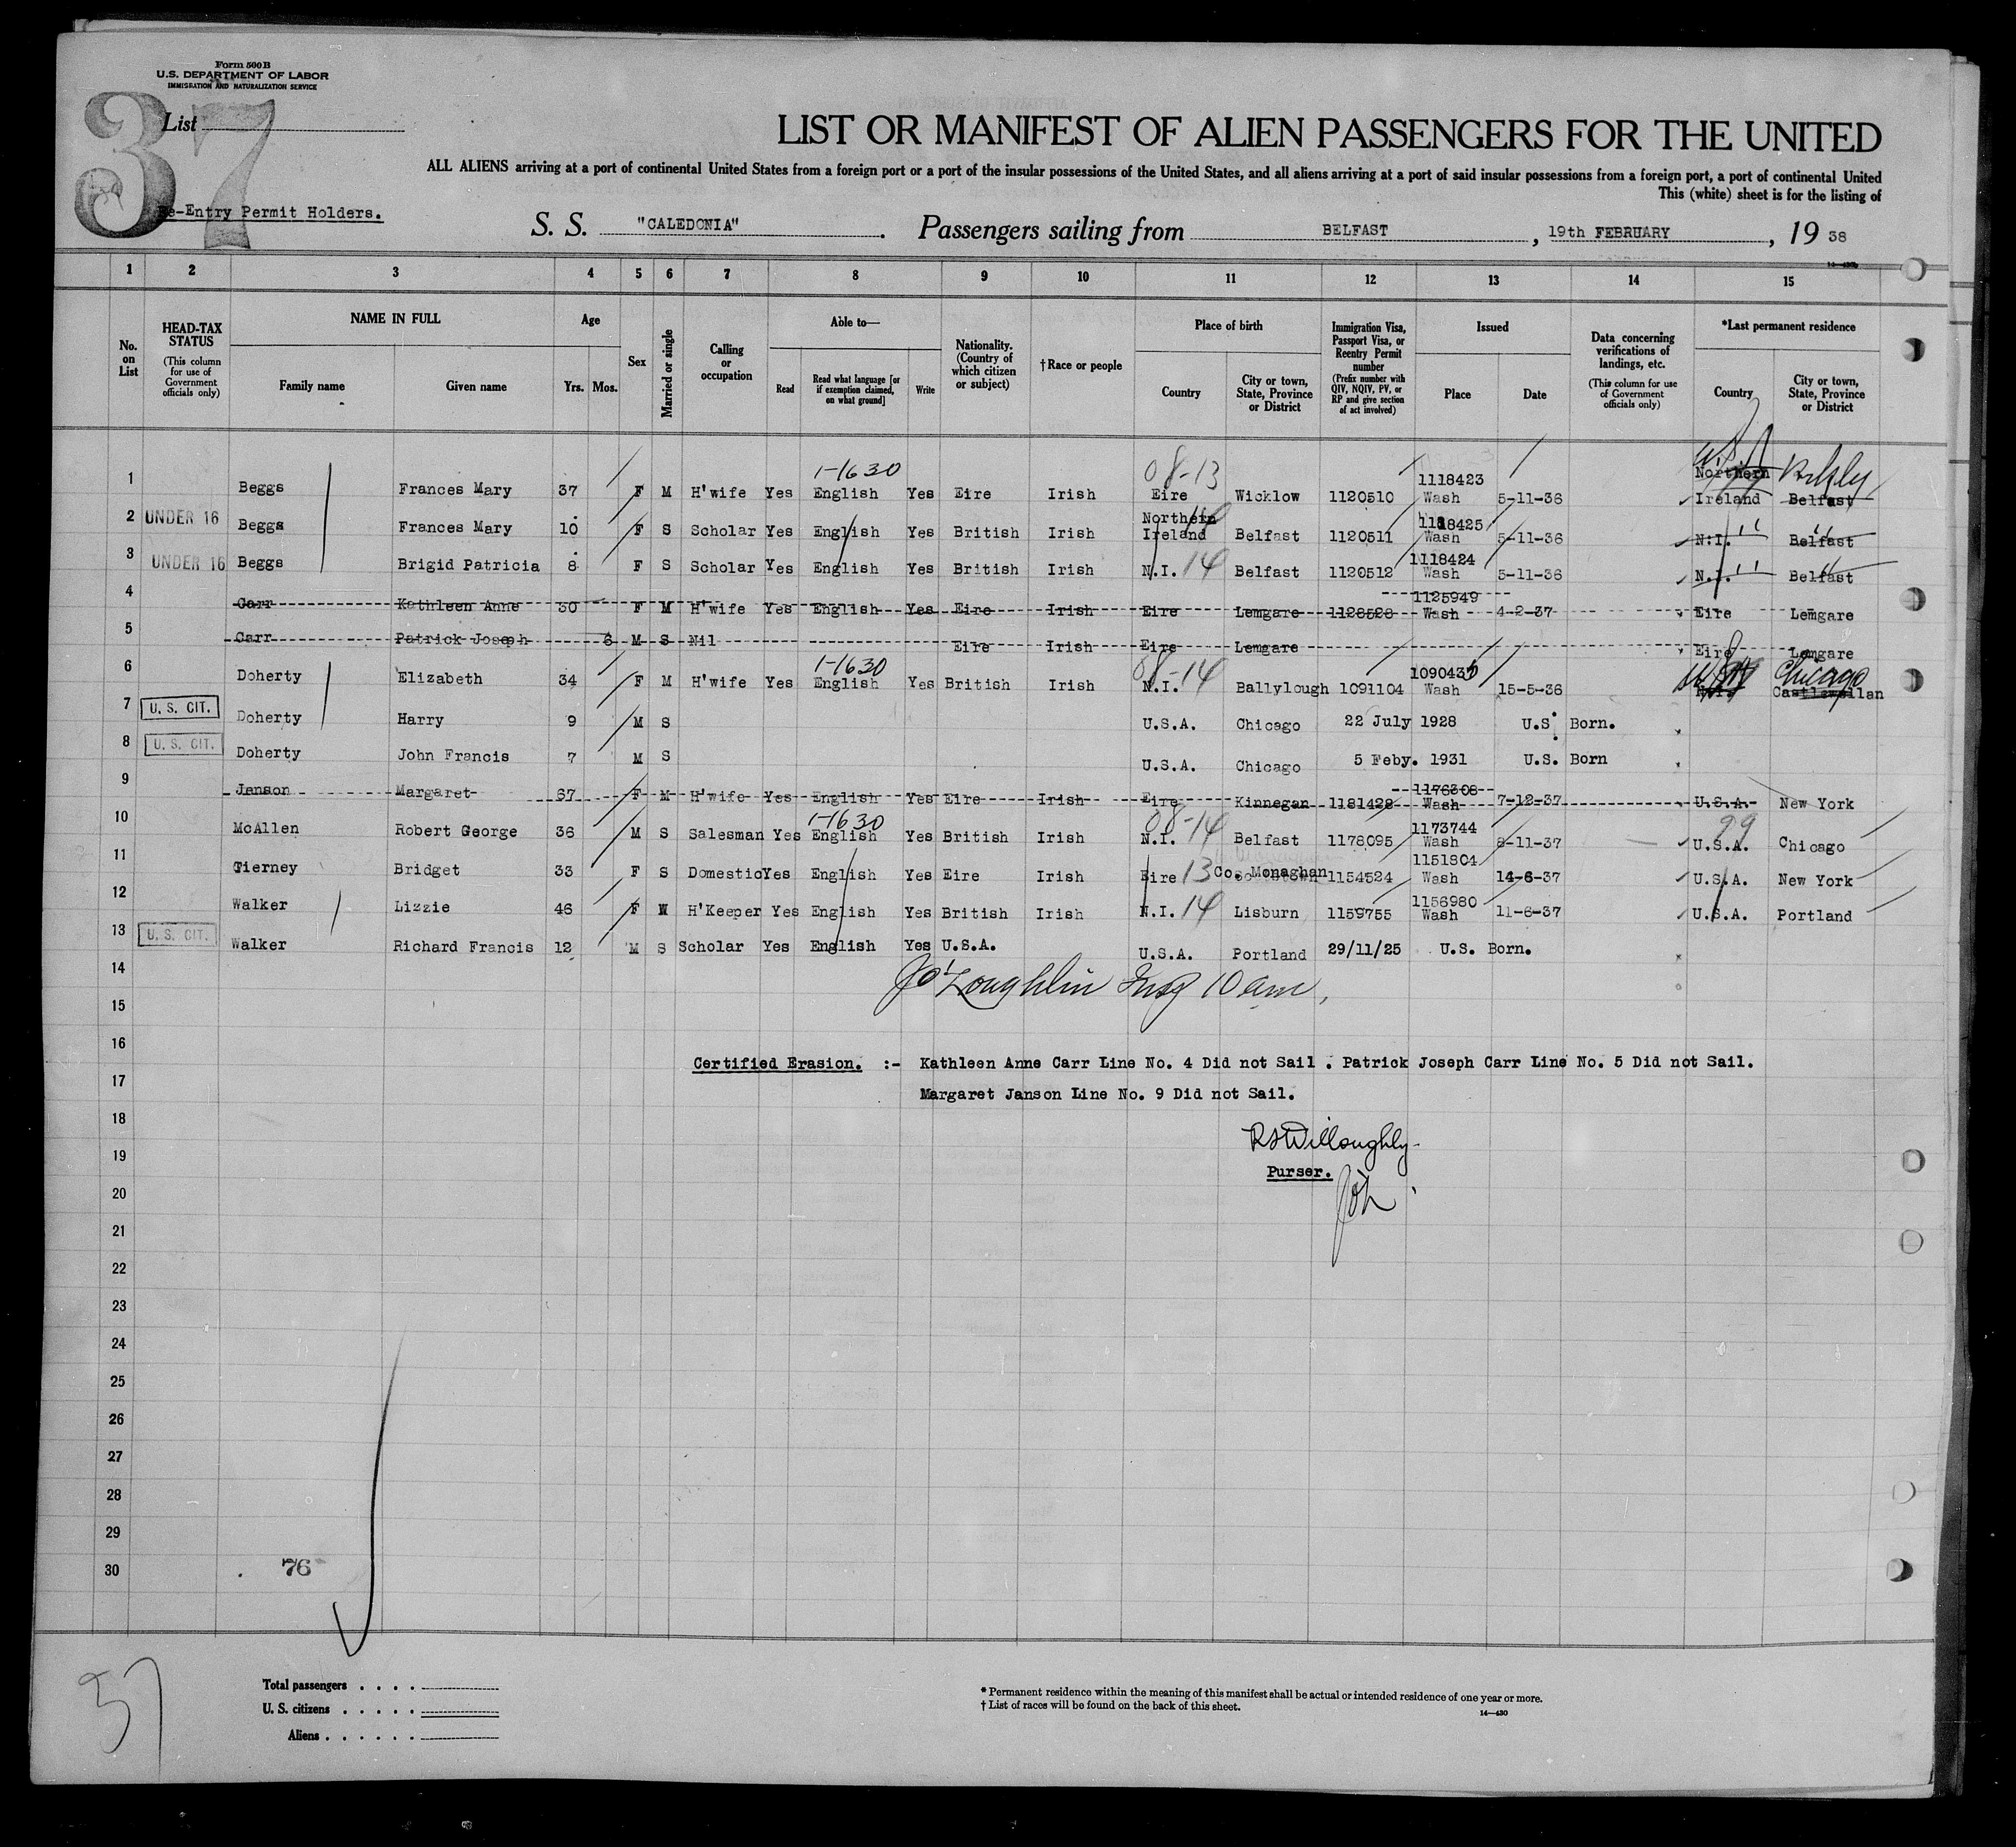 Form 500B
U.S. DEPARTMENT OF LABOR
IMMIGRATION AND NATURALIZATION SERVICE
37
List
LIST OR MANIFEST OF ALIEN PASSENGERS FOR THE UNITED
ALL ALIENS arriving at a port of continental United States from a foreign port or a port of the insular possessions of the United States, and all aliens arriving at a port of said insular possessions from a foreign port, a port of continental United
This (white) sheet is for the listing of
Re-Entry Permit Holders.
S. S. "CALEDONIA". Passengers sailing from BELFAST, 19th FEBRUARY, 19 38
1 2 3 4 5 6 7 8 9 10 11 12 13 14 15
No. on List
HEAD-TAX STATUS (This column for use of Government officials only)
NAME IN FULL Family name Given name
Age Yrs. Mos.
Sex
Married or single
Calling or occupation
Able to— Read Read what language [or if exemption claimed, on what ground] Write
Nationality. (Country of which citizen or subject)
†Race or people
Place of birth Country City or town, State, Province or District
Immigration Visa, Passport Visa, or Reentry Permit number (Prefix number with QIV, NQIV, PV, or RP and give section of act involved)
Issued Place Date
Data concerning verifications of landings, etc. (This column for use of Government officials only)
*Last permanent residence Country City or town, State, Province or District
1-1630 08-13 1118423 Northern
1 Beggs Frances Mary 37 F M H'wife Yes English Yes Eire Irish Eire Wicklow 1120510 Wash 5-11-36 Ireland Belfast
2 UNDER 16 Beggs Frances Mary 10 F S Scholar Yes English Yes British Irish Northern Ireland 14 Belfast 1120511 1118425 Wash 5-11-36 N.I. " Belfast "
3 UNDER 16 Beggs Brigid Patricia 8 F S Scholar Yes English Yes British Irish N.I. 14 Belfast 1120512 1118424 Wash 5-11-36 N.I. " Belfast "
4 Carr Kathleen Anne 30 F M H'wife Yes English Yes Eire Irish Eire Lemgare 1128528 1125949 Wash 4-2-37 Eire Lemgare
5 Carr Patrick Joseph 6 M S Nil Eire Irish Eire Lemgare Eire Lemgare
1-1630 08-14 Chicago
6 Doherty Elizabeth 34 F M H'wife Yes English Yes British Irish N.I. Ballylough 1091104 1090435 Wash 15-5-36 Castlewellan
7 U. S. CIT. Doherty Harry 9 M S U.S.A. Chicago 22 July 1928 U.S. Born.
8 U. S. CIT. Doherty John Francis 7 M S U.S.A. Chicago 5 Feby. 1931 U.S. Born
9 Janson Margaret 67 F M H'wife Yes English Yes Eire Irish Eire Kinnegan 1181428 1176308 Wash 7-12-37 U.S.A. New York
1-1630 08-14 99
10 McAllen Robert George 36 M S Salesman Yes English Yes British Irish N.I. Belfast 1178095 1173744 Wash 8-11-37 U.S.A. Chicago
11 Tierney Bridget 33 F S Domestic Yes English Yes Eire Irish Eire 13 Co. Monaghan 1154524 1151804 Wash 14-6-37 U.S.A. New York
12 Walker Lizzie 46 F W H'Keeper Yes English Yes British Irish N.I. 14 Lisburn 1159755 1156980 Wash 11-6-37 U.S.A. Portland
13 U. S. CIT. Walker Richard Francis 12 M S Scholar Yes English Yes U.S.A. U.S.A. Portland 29/11/25 U.S. Born.
14
J O'Loughlin Insp 10 am.
15
16
Certified Erasion. :- Kathleen Anne Carr Line No. 4 Did not Sail . Patrick Joseph Carr Line No. 5 Did not Sail.
17
Margaret Janson Line No. 9 Did not Sail.
18
RSWilloughby
19
Purser.
20
JOL
21
22
23
24
25
26
27
28
29
30 76
37
Total passengers . . . .
U. S. citizens . . . . .
Aliens . . . . . .
* Permanent residence within the meaning of this manifest shall be actual or intended residence of one year or more.
† List of races will be found on the back of this sheet.
14—430